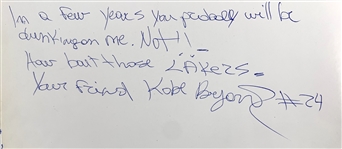 In a few years you probably will be
dunking on me. Not!!
How bout those LAKERS.
Your Friend Kobe Bryant #24